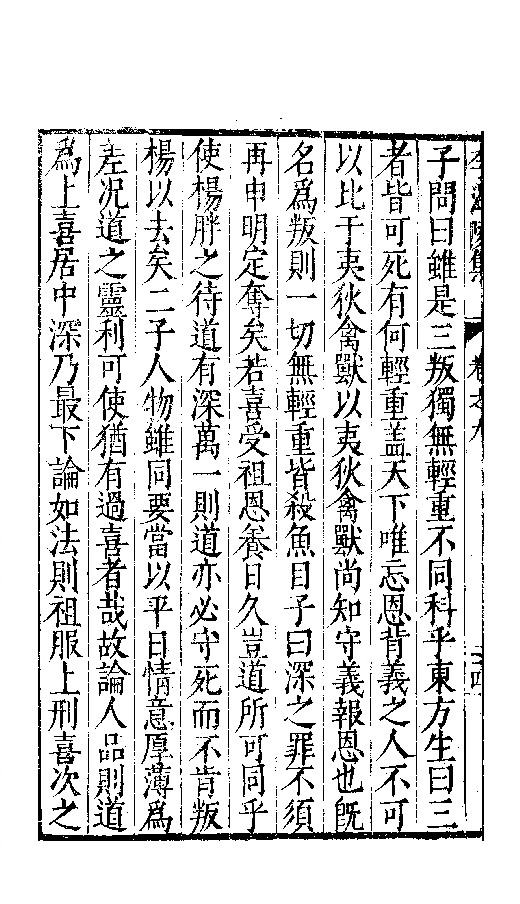 李溫陵集 卷之九 十四
子問曰雖是三叛獨無輕重不同科乎東方生曰三
者皆可死有何輕重蓋天下唯忘恩背義之人不可
以比于夷狄禽獸以夷狄禽獸尚知守義報恩也既
名爲叛則一切無輕重皆殺魚目子曰深之罪不須
再申明定奪矣若喜受祖恩養日久豈道所可同乎
使楊胖之待道有深萬一則道亦必守死而不肯叛
楊以去矣二子人物雖同要當以平日情意厚薄爲
差况道之靈利可使猶有過喜者哉故論人品則道
爲上喜居中深乃最下論如法則祖服上刑喜次之